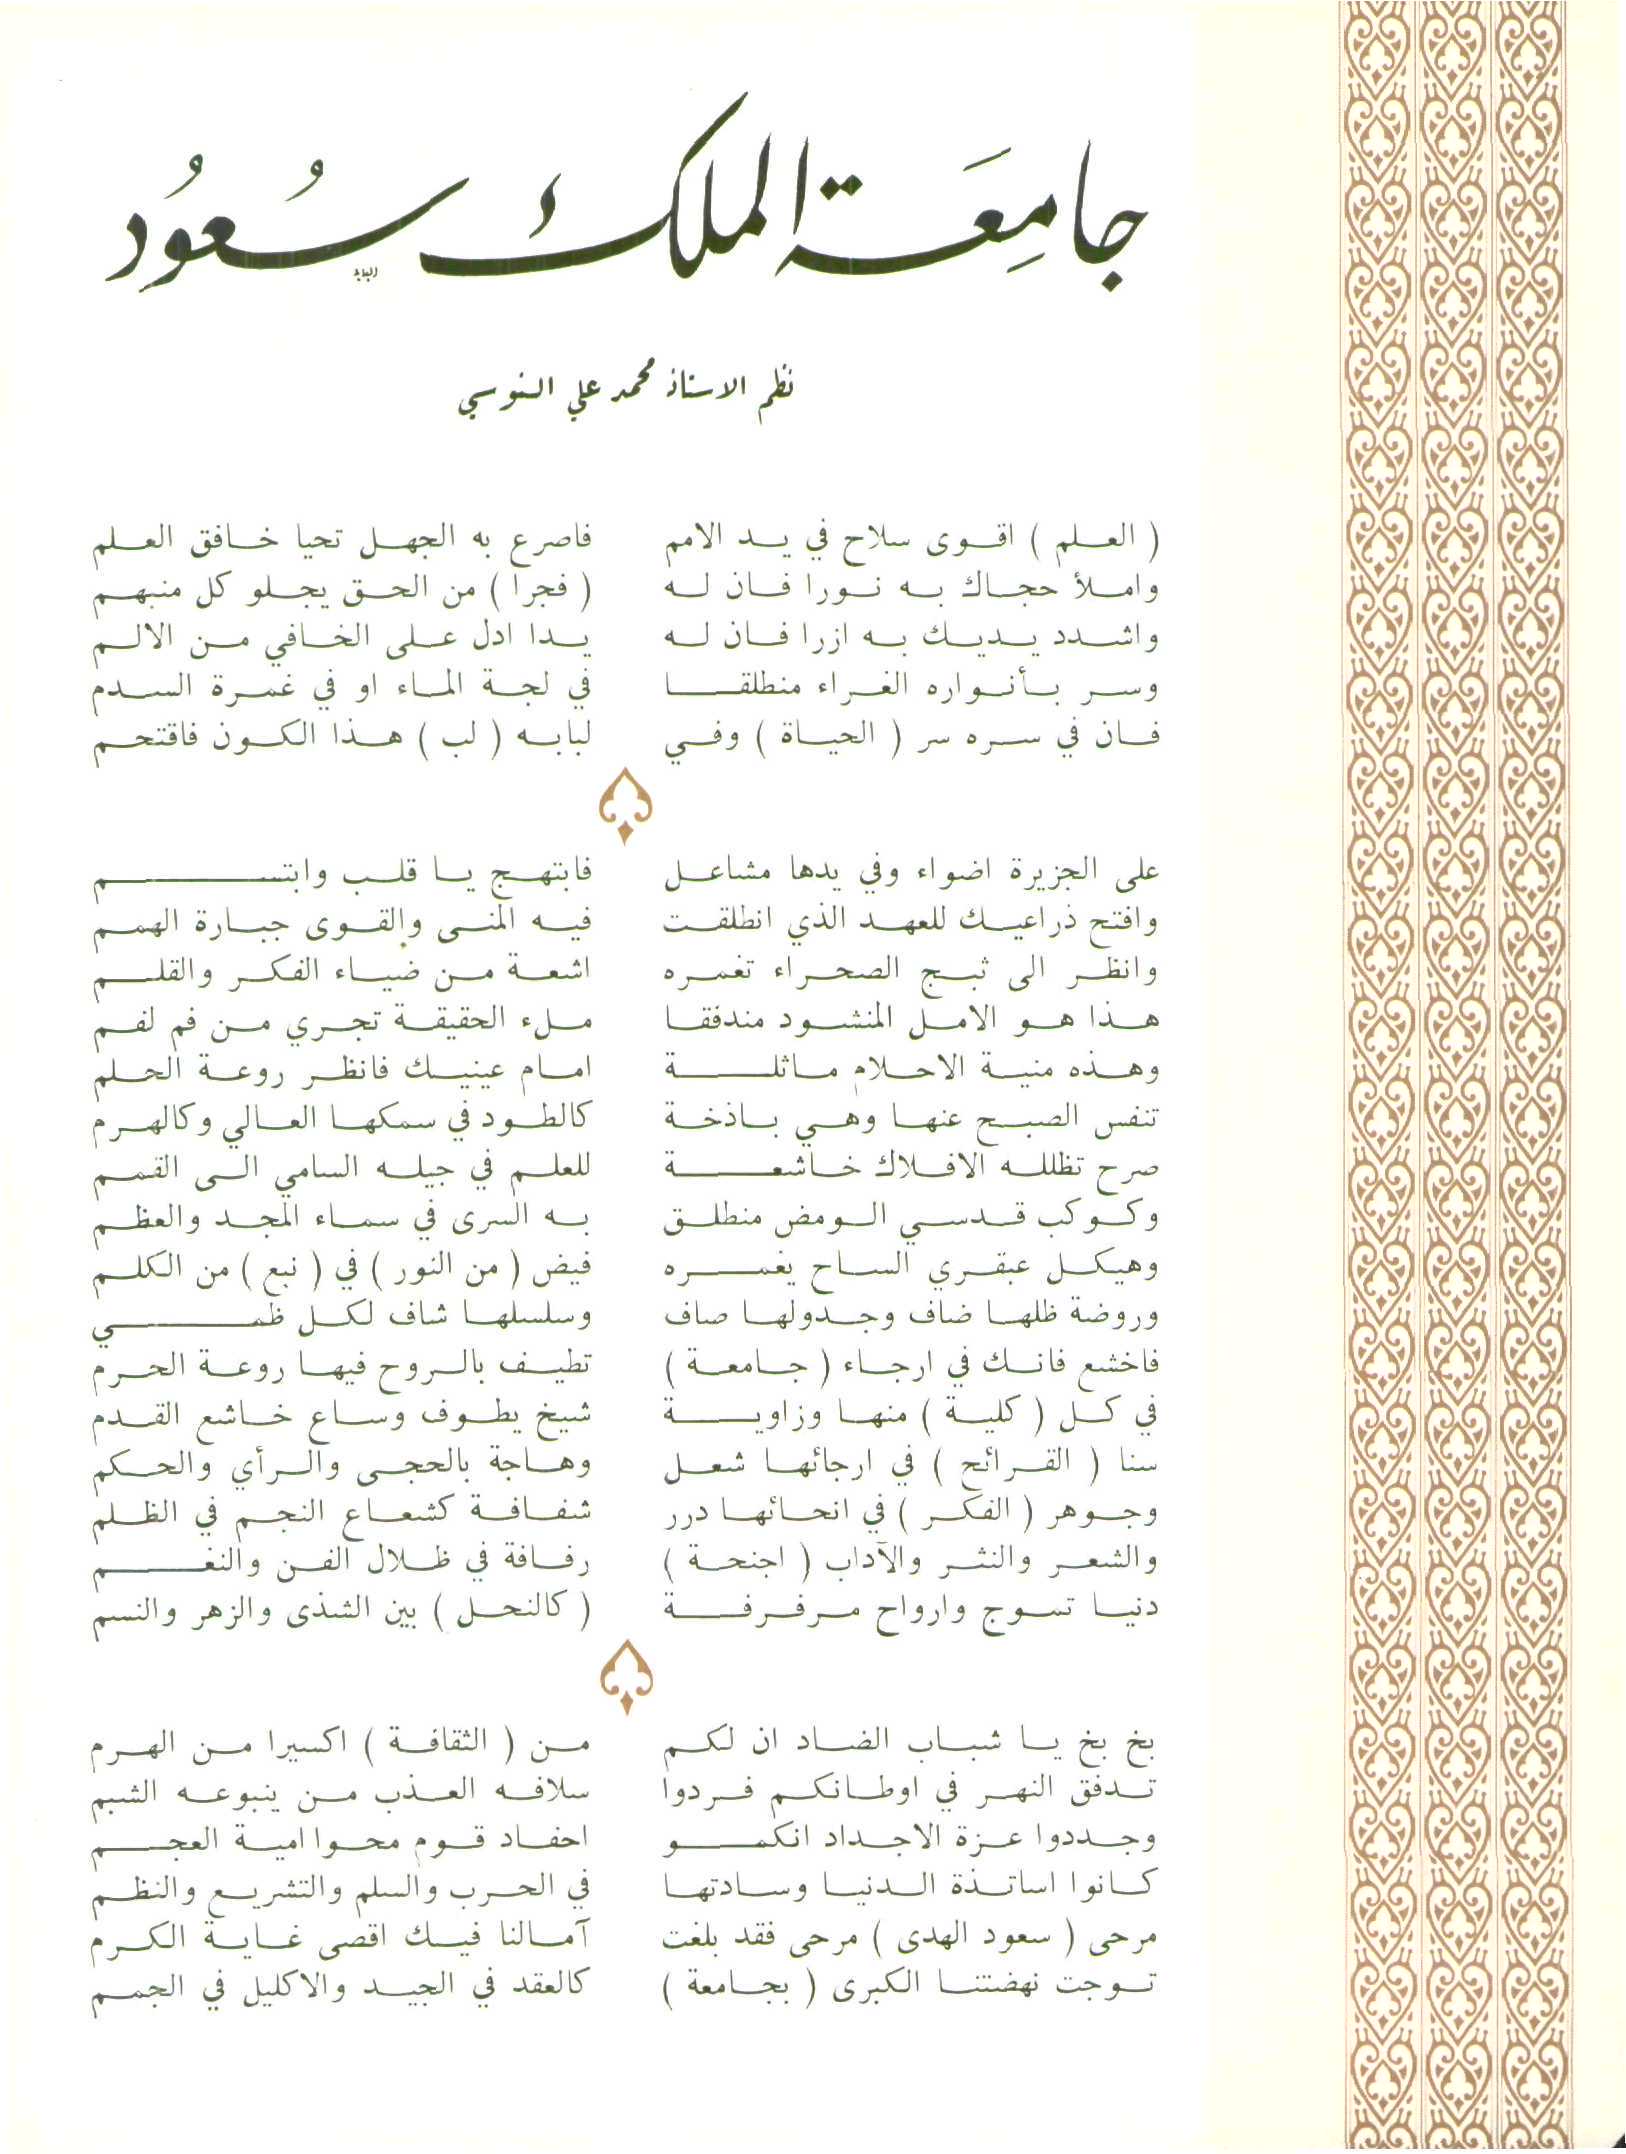 جامِعَة الملك سُعُود
نظم الاستاذ محمد علي السنوسي
( العلم ) اقوى سلاح في يد الامم فاصرع به الجهل تحيا خافق العلم
واملأ حجاك به نورا فان له ( فجرا ) من الحق يجلو كل منبهم
واشدد يديك به ازرا فان له يدا ادل على الخافي من الالم
وسر بأنواره الغراء منطلقا في لجة الماء او في غمرة السدم
فان في سره سر ( الحياة ) وفي لبابه ( لب ) هذا الكون فاقتحم
على الجزيرة اضواء وفي يدها مشاعل فابتهج يا قلب وابتسم
وافتح ذراعيك للعهد الذي انطلقت فيه المنى والقوى جبارة الهمم
وانظر الى ثبج الصحراء تغمره اشعة من ضياء الفكر والقلم
هذا هو الامل المنشود مندفقا ملء الحقيقة تجري من فم لفم
وهذه منية الاحلام ماثلة امام عينيك فانظر روعة الحلم
تنفس الصبح عنها وهي باذخة كالطود في سمكها العالي وكالهرم
صرح تظلله الافلاك خاشعة للعلم في جيله السامي الى القمم
وكوكب قدسي الومض منطلق به السرى في سماء المجد والعظم
وهيكل عبقري الساح يغمره فيض ( من النور ) في ( نبع ) من الكلم
وروضة ظلها ضاف وجدولها صاف وسلسلها شاف لكل ظمي
فاخشع فانك في ارجاء ( جامعة ) تطيف بالروح فيها روعة الحرم
في كل ( كلية ) منها وزاوية شيخ يطوف وساع خاشع القدم
سنا ( القرائح ) في ارجائها شعل وهاجة بالحجى والرأي والحكم
وجوهر ( الفكر ) في انحائها درر شفافة كشعاع النجم في الظلم
والشعر والنثر والآداب ( اجنحة ) رفافة في ظلال الفن والنغم
دنيا تموج وارواح مرفرفة ( كالنحل ) بين الشذى والزهر والنسم
بخ بخ يا شباب الضاد ان لكم من ( الثقافة ) اكسيرا من الهرم
تدفق النهر في اوطانكم فردوا سلافه العذب من ينبوعه الشبم
وجددوا عزة الاجداد انكمو احفاد قوم محوا امية العجم
كانوا اساتذة الدنيا وسادتها في الحرب والسلم والتشريع والنظم
مرحى ( سعود الهدى ) مرحى فقد بلغت آمالنا فيك اقصى غاية الكرم
توجت نهضتنا الكبرى ( بجامعة ) كالعقد في الجيد والاكليل في الجمم